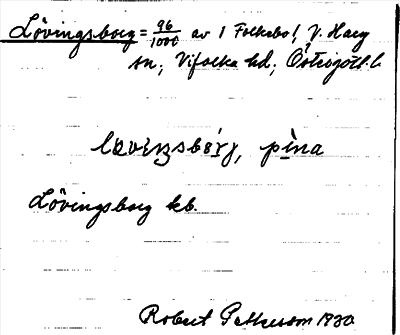 Lövingsborg = 96/1000 av 1 Folkebo!, V. Harg
sn; Vifolka hd; Östergötl. l.
löviŋsbórj, pìna
Lövingsborg kb.
Robert Pettersson 1930